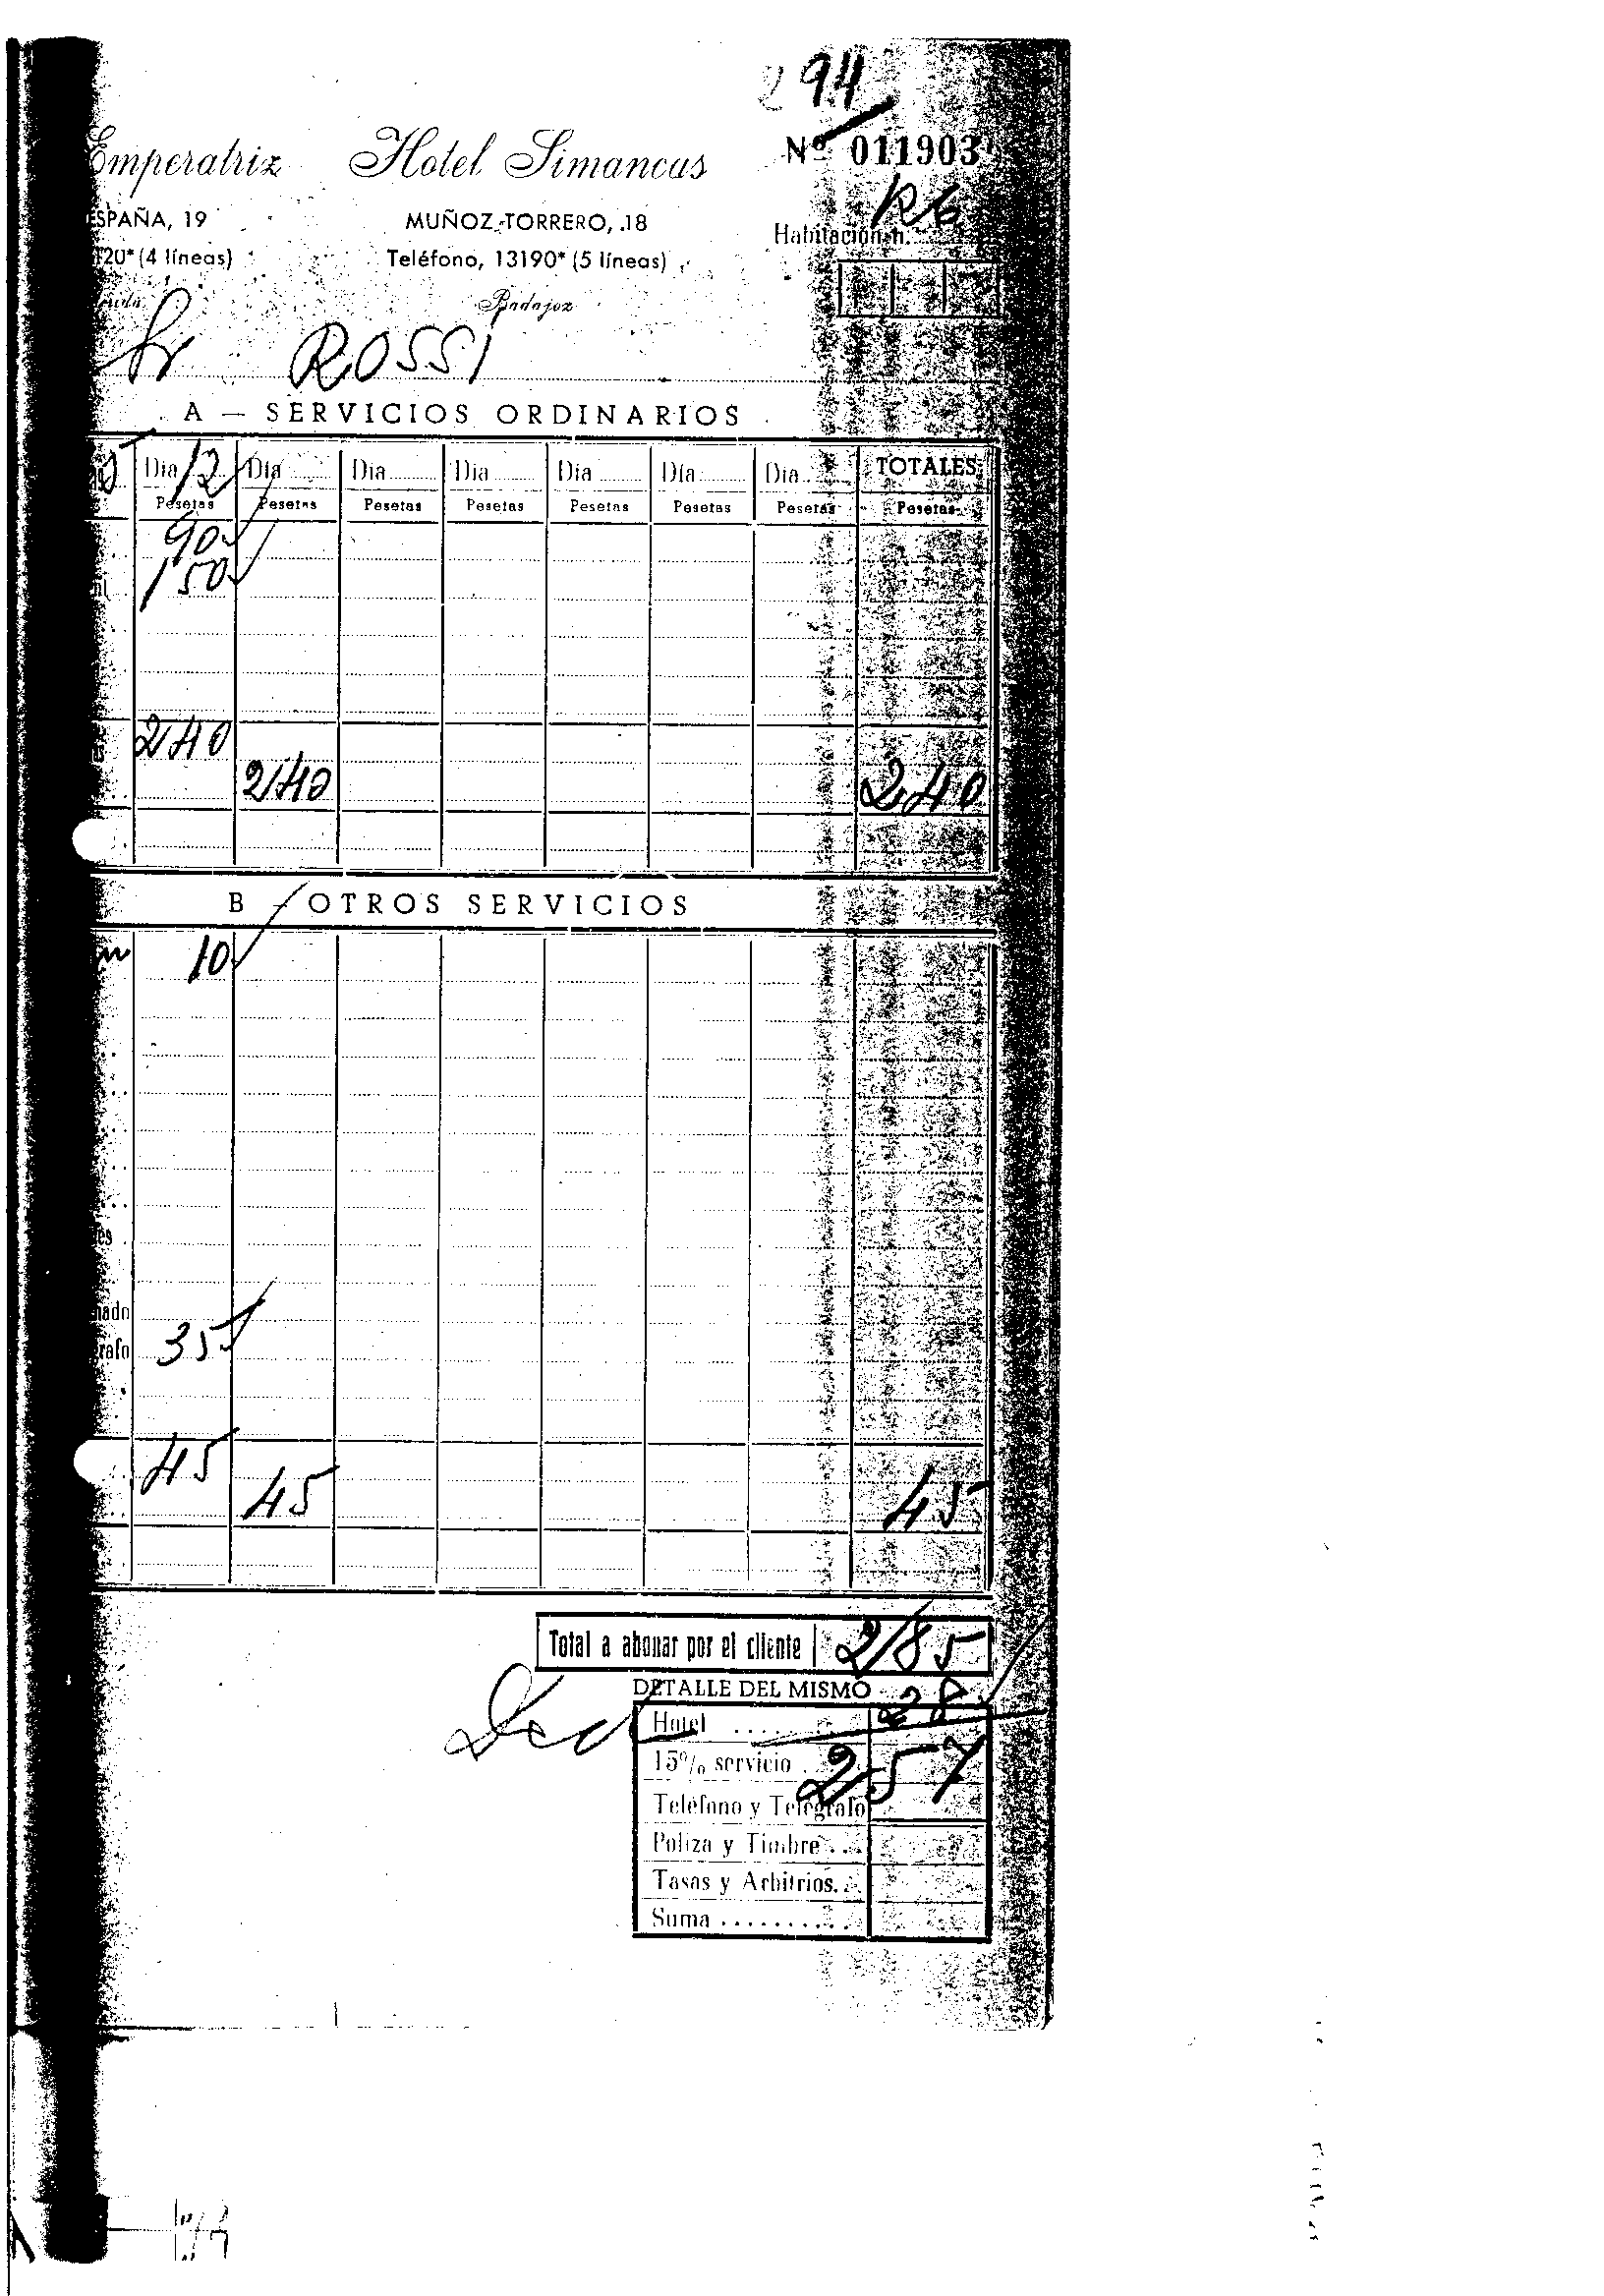 294
Emperatriz Hotel Simancas Nº 011903
ESPAÑA, 19 MUÑOZ-TORRERO, 18 Habitación n.
120* (4 líneas) Teléfono, 13190* (5 líneas)
Badajoz
Sr ROSSI
A — SERVICIOS ORDINARIOS
Día 12 Día Día Día Día Día Día TOTALES
Pesetas Pesetas Pesetas Pesetas Pesetas Pesetas Pesetas Pesetas
90
150
240
240 240
B — OTROS SERVICIOS
10
es
nado
rafo 35
45
45 45
Total a abonar por el cliente 285
DETALLE DEL MISMO 28
Hotel
15% servicio 257
Teléfono y Telégrafo
Poliza y Timbre
Tasas y Arbitrios.
Suma